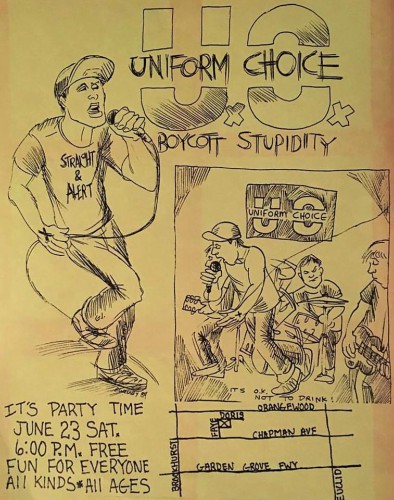 U.C.
x x
UNIFORM CHOICE
BOYCOTT STUPIDITY
STRAIGHT
&
ALERT
X
UC
UNIFORM CHOICE
IT'S O.K.
NOT TO DRINK!
IT'S PARTY TIME
JUNE 23 SAT.
6:00 P.M. FREE
FUN FOR EVERYONE
All KINDS * All AGES
ORANGEWOOD
DORIS
FAYE
X
CHAPMAN AVE
GARDEN GROVE FWY
BROOKHURST
EUCLID